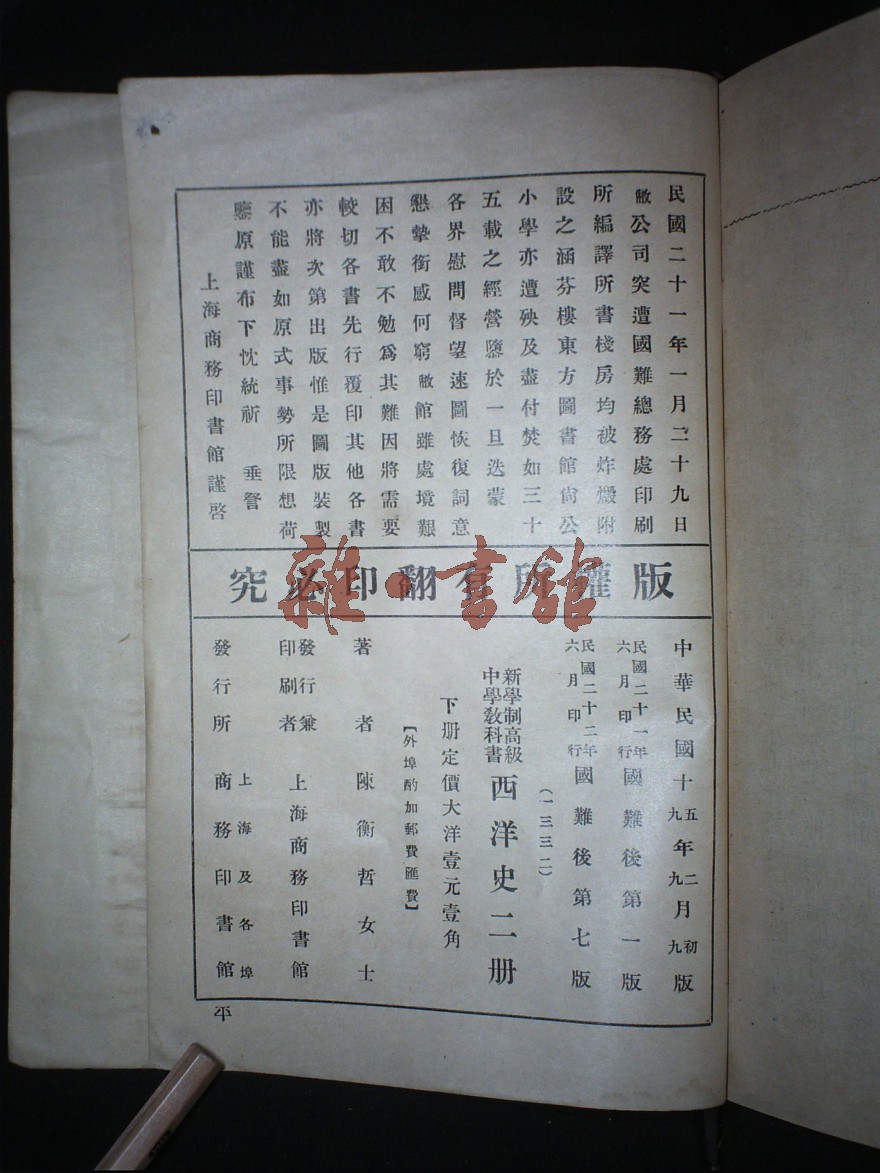 民國二十一年一月二十九日
敝公司突遭國難總務處印刷
所編譯所書棧房均被炸燬附
設之涵芬樓東方圖書館尙公
小學亦遭殃及盡付焚如三十
五載之經營隳於一旦迭蒙
各界慰問督望速圖恢復詞意
懇摯銜感何窮敝館雖處境艱
困不敢不勉爲其難因將需要
較切各書先行覆印其他各書
亦將次第出版惟是圖版裝製
不能盡如原式事勢所限想荷
鑒原謹布下忱統祈 垂詧
上海商務印書館謹啓
版權所有翻印必究
中華民國十五年二月初版
九 九 九
民國二十一年六月印行國難後第一版
民國二十二年六月印行國難後第七版
(一三三二)
新學制高級中學教科書 西洋史二册
下册定價大洋壹元壹角
【外埠酌加郵費匯費】
著者 陳衡哲女士
發行兼印刷者 上海商務印書館
發行所 上海及各埠 商務印書館
平
雜·書館